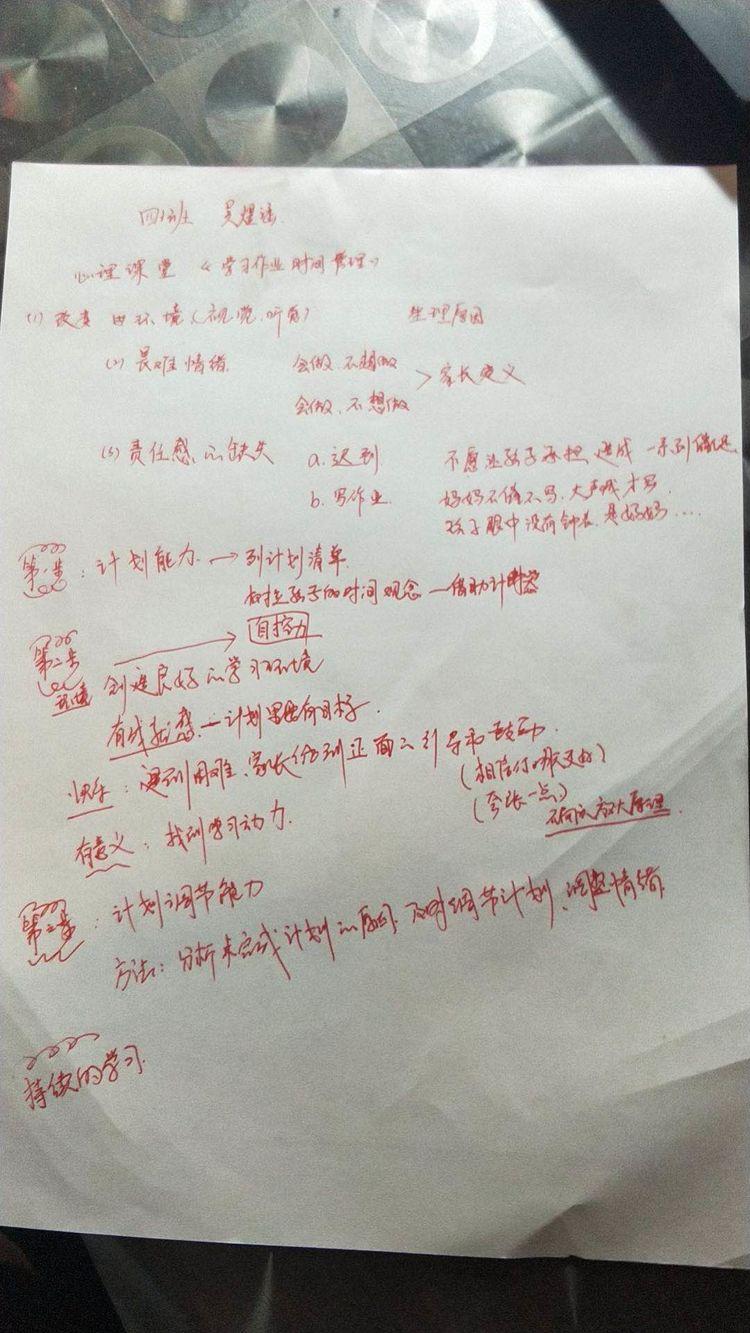 四(2)班
心理课堂 《学习作业时间管理》
(1) 改变 由环境(视觉.听觉) 生理原因
(2) 畏难情绪. 会做.不想做
会做.不想做 > 家长定义
(3) 责任感的缺失 a.迟到 不愿让孩子承担.造成一系列
b.写作业. 妈妈不催不写.大声喊才写.
孩子眼中没有钟表.是妈妈....
第一步：计划能力.→列计划清单.
树立孩子的时间观念—借助计时器
第二步 自控力
环境 创造良好的学习环境
有成就感.—计划里的目标.
快乐：遇到困难、家长给到正面的引导和鼓动
(相信你哦更好)
(夸张一点)
放大原理.
有意义：找到学习动力.
第三步：计划调节能力
方法：分析未完成计划的原因.及时调节计划、调整情绪.
持续的学习.